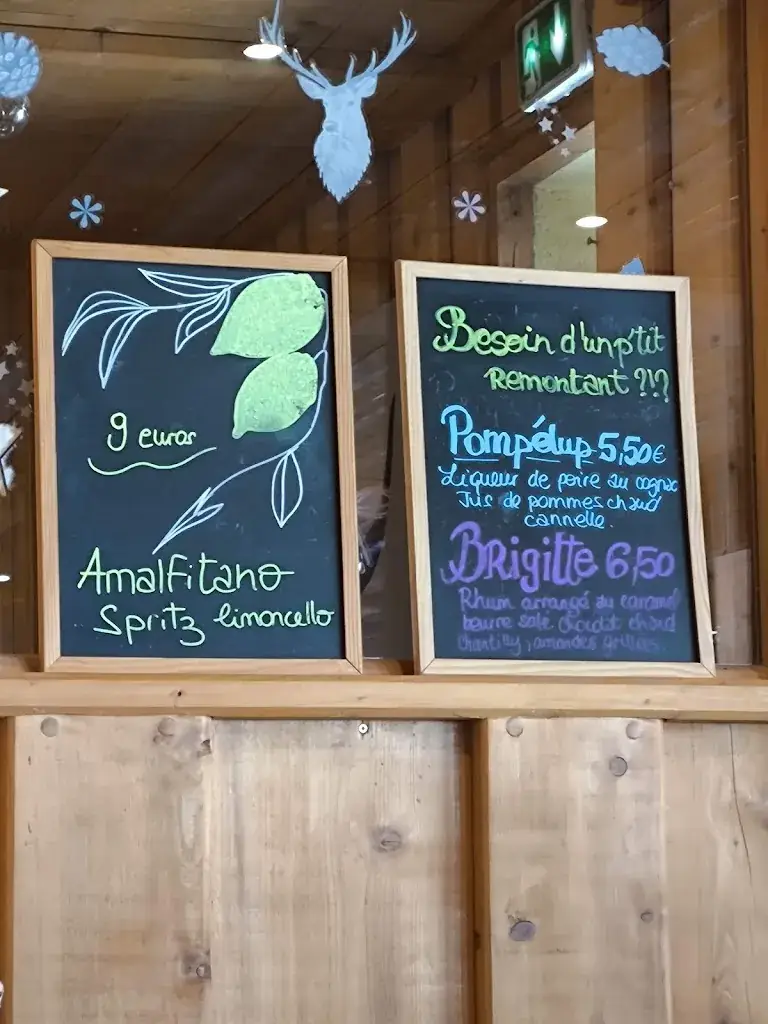 9 euros
Amalfitano
Spritz limoncello
Besoin d'un p'tit
remontant ?!?
Pompélup 5,50€
Liqueur de poire au cognac
Jus de pommes chaud
cannelle.
Brigitte 6,50
Rhum arrangé au caramel
beurre salé chocolat chaud
Chantilly, amandes grillées.